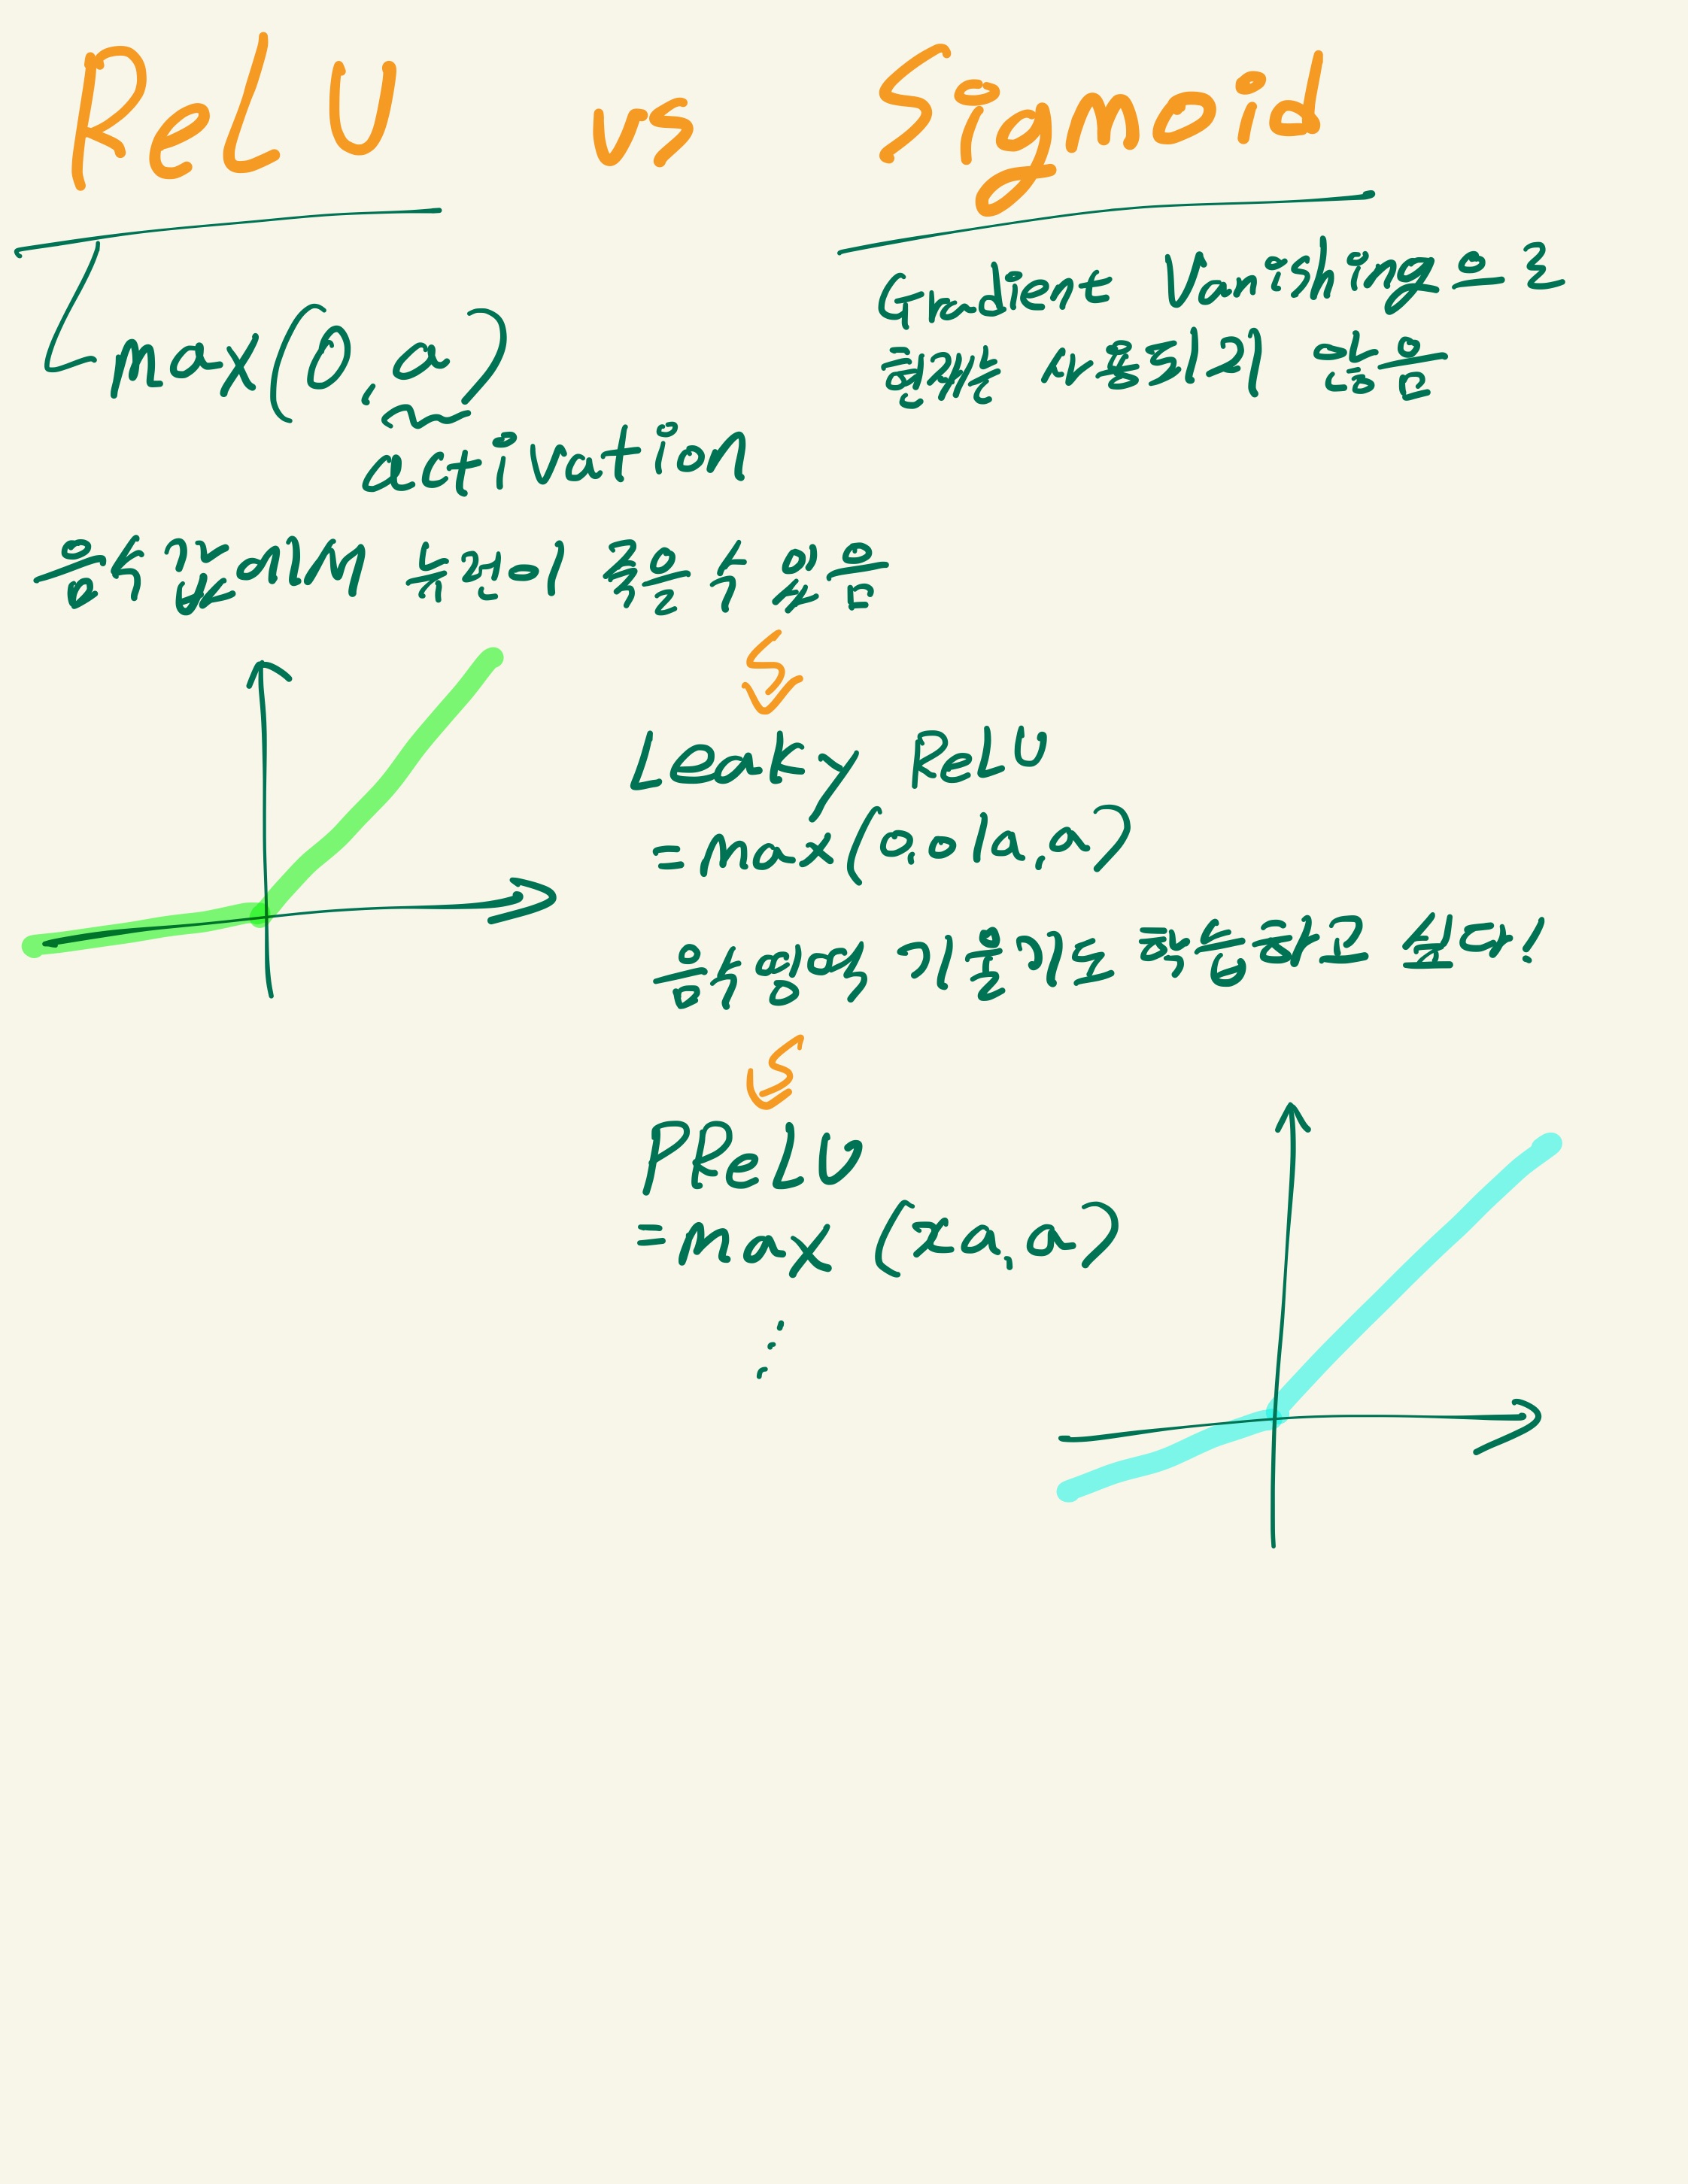 ReLU vs Sigmoid
max(0, a)
activation
Gradient Vanishing으로
현재는 사용되지 않음
음수 값에서 뉴런이 죽을 수 있음
Leaky ReLU
= max(0.01a, a)
음수 영역 기울기도 학습하고 싶다!
PReLU
= max (za, a)
⋮